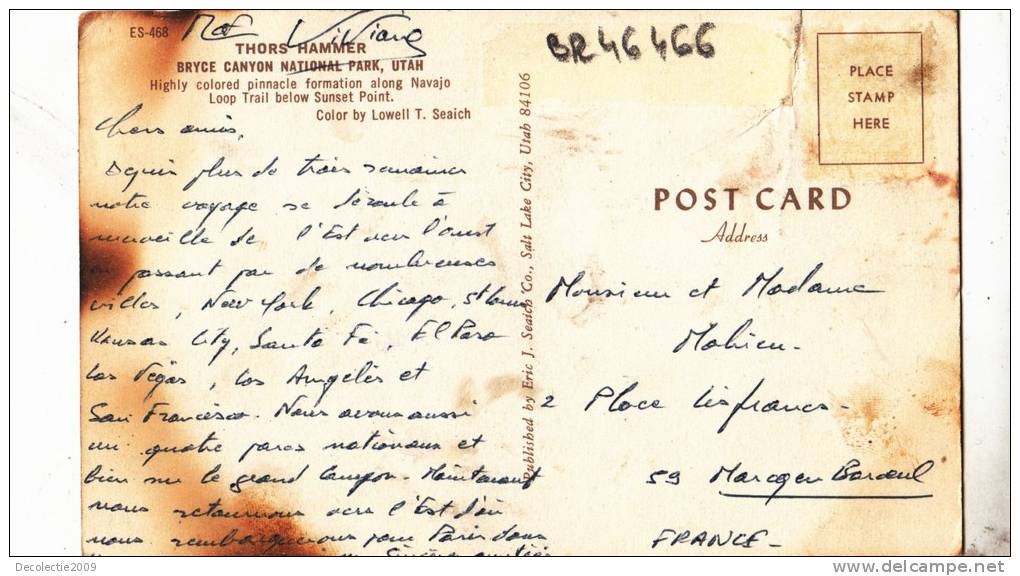 ES-468
M et Viviane
THORS HAMMER
BRYCE CANYON NATIONAL PARK, UTAH
Highly colored pinnacle formation along Navajo
Loop Trail below Sunset Point.
Color by Lowell T. Seaich
Chers amis,
Depuis plus de trois semaines
notre voyage se déroule à
merveille de l'Est vers l'ouest
en passant par de nombreuses
villes, New York, Chicago, St Louis
Kansas City, Santa Fe, El Paso
Las Végas, Los Angelès et
San Francisco. Nous avons aussi
vu quatre parcs nationaux et
bien sur le grand Canyon. Maintenant
nous retournons vers l'Est d'où
nous rembarquerons pour Paris dans
Sincères amitiés
Published by Eric J. Seaich Co., Salt Lake City, Utah 84106
BR46466
PLACE
STAMP
HERE
POST CARD
Address
Monsieur et Madame
Mahieu
2 Place Lisfrancs
59 Marcq en Baroeul
FRANCE
Decolectie2009
www.delcampe.net